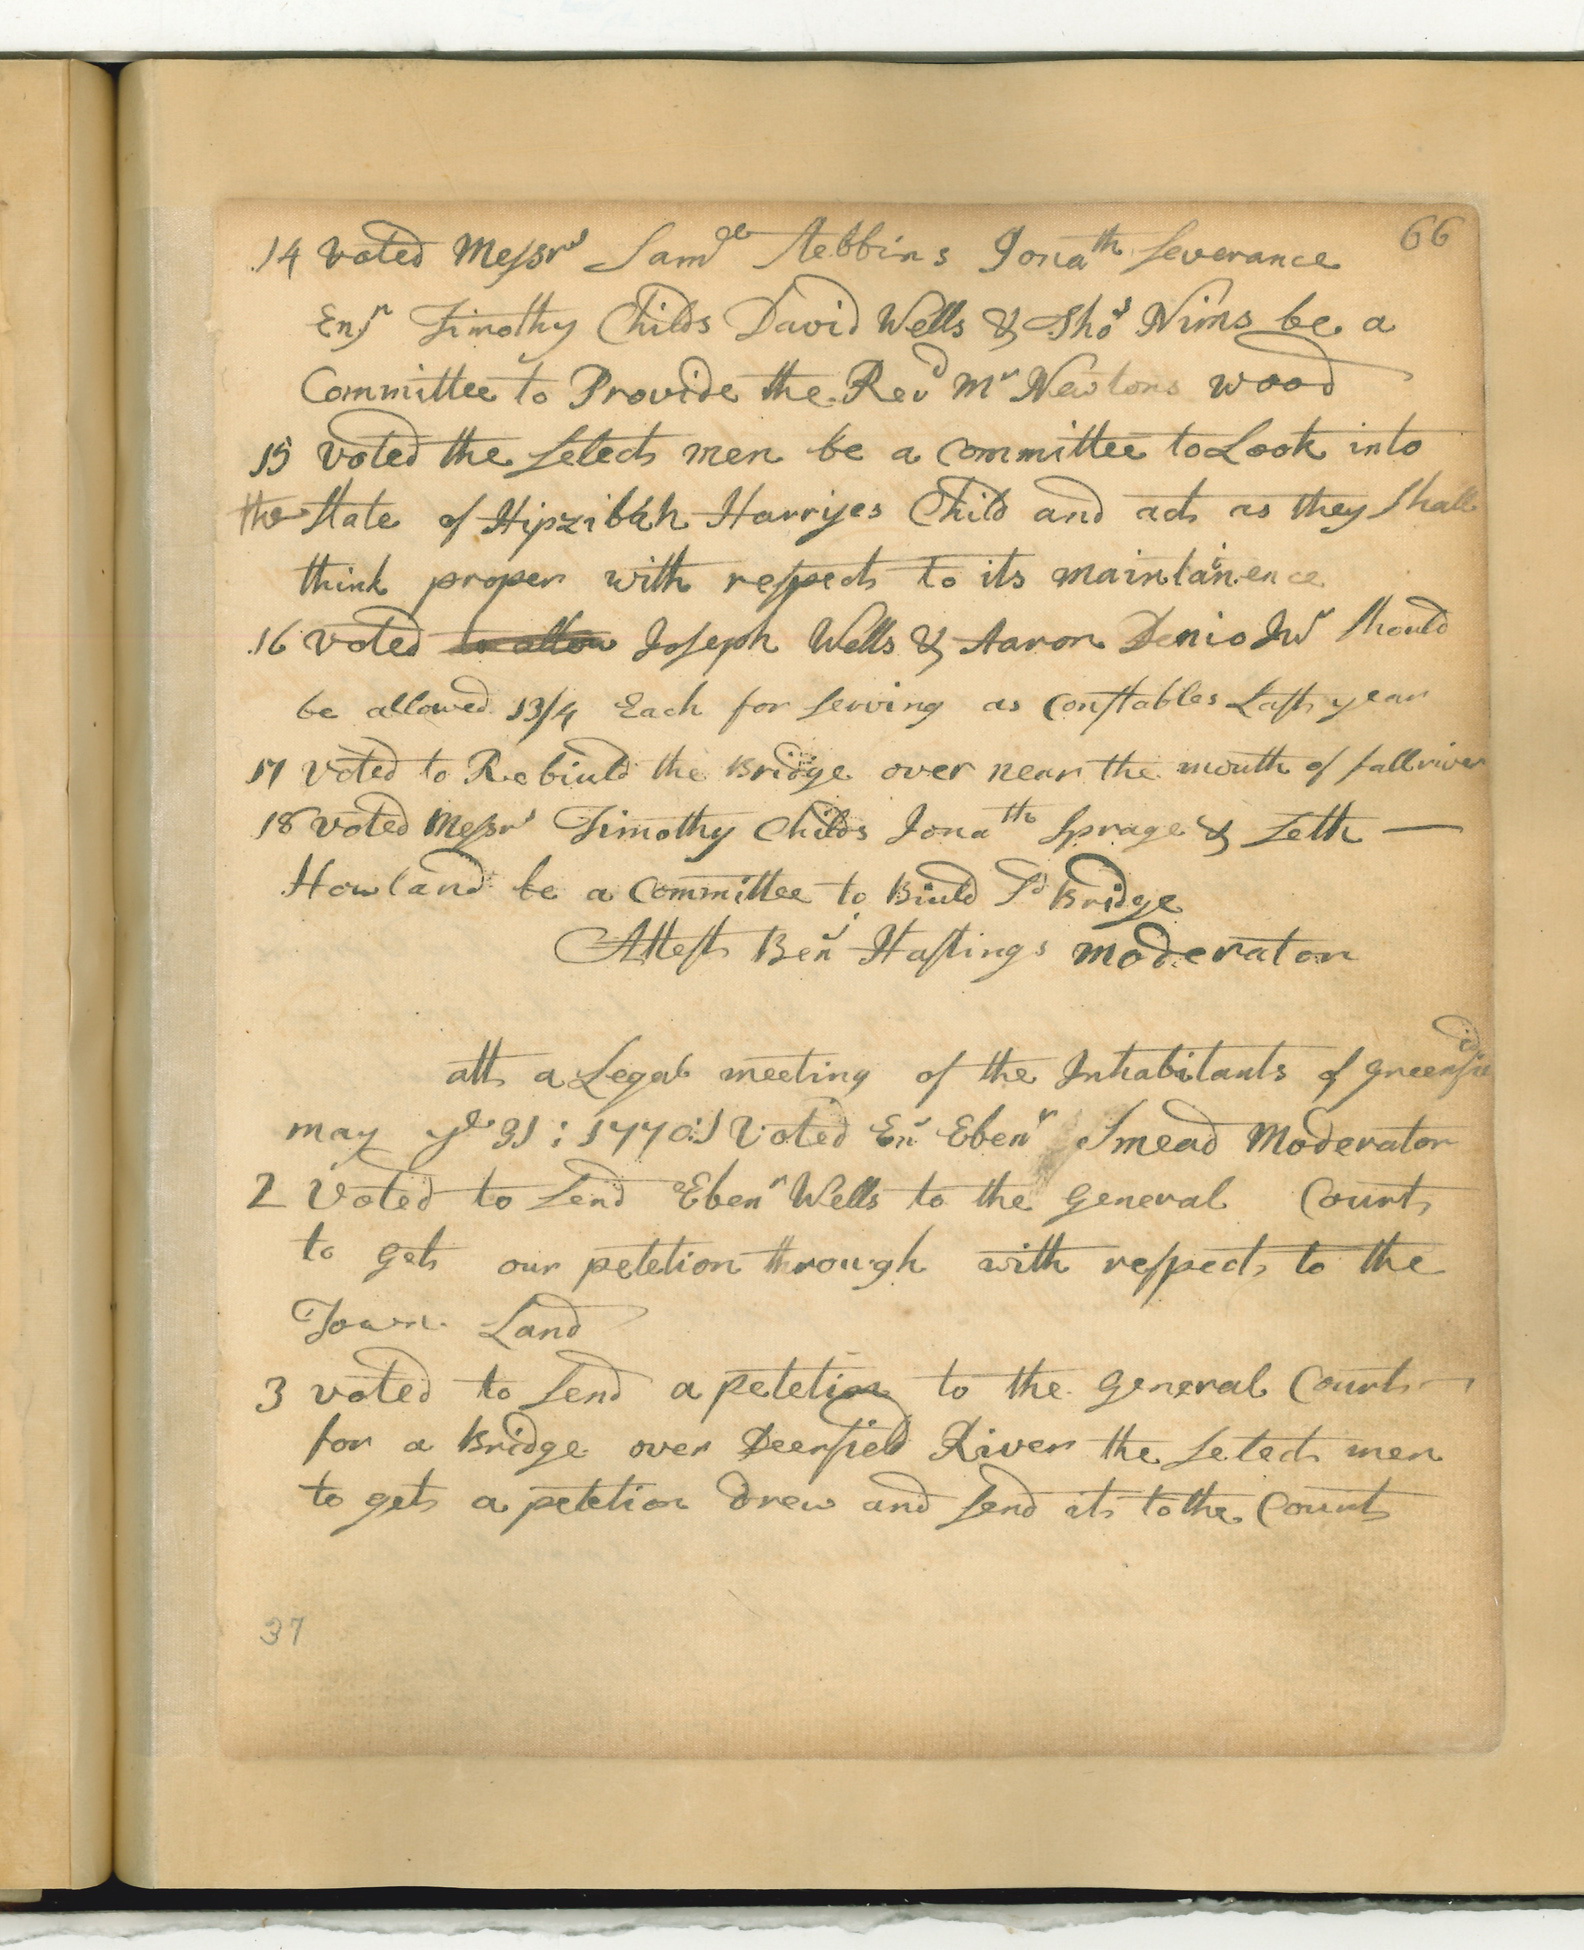 66
14 voted Messrs Samll Stebbins Jonath Severance
Ensn Timothy Childs David Wells & Thos Nims be a
Committee to Provide the Revd Mr Newtons wood
15 voted the Select men be a Committee to Look into
the State of Hipzibah Harrises Child and act as they Shall
think proper with respect to its maintainence
16 voted to allow Joseph Wells & Aaron Denio Jur Should
be allowed 13/4 Each for Serving as Constables Last year
17 voted to Rebiuld the Bridge over near the mouth of fall river
18 voted Messrs Timothy Childs Jonath Sprage & Seth —
Howland be a Committee to Biuld Sd Bridge
Attest Benj Hastings moderator
att a Legal meeting of the Inhabitants of greenfield
may ye 31 : 1770 : 1 Voted En Ebenr Smead Moderator
2 Voted to Send Ebenr Wells to the General Court
to get our petetion through with respect to the
Town Land
3 voted to Send a petetion to the General Court —
for a Bridge over Deerfield River the Select men
to get a petetion drew and Send it to the Court
37